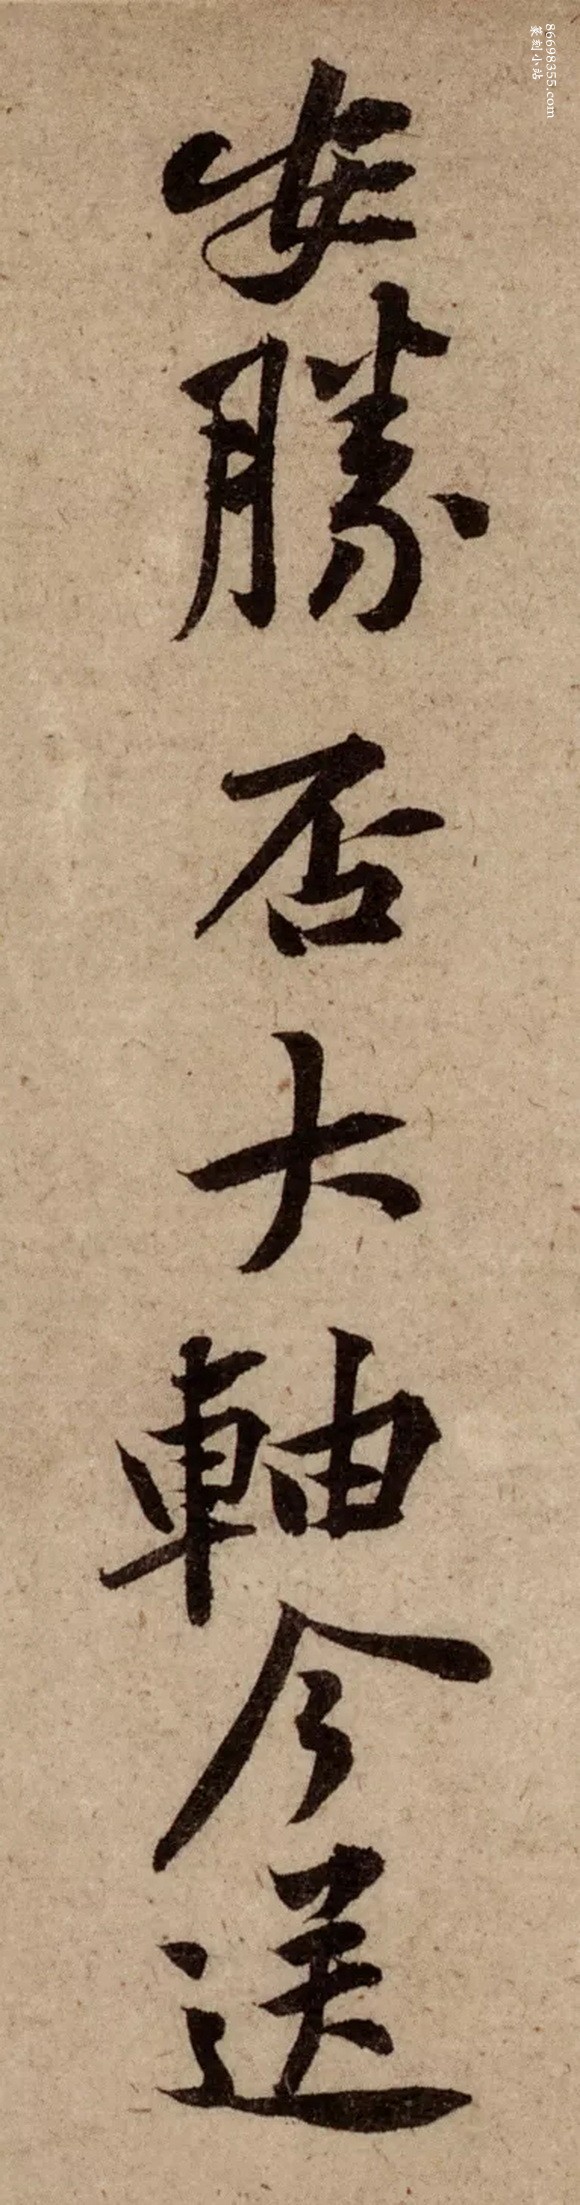 86698355.com
篆刻小站
安勝否大軸今送